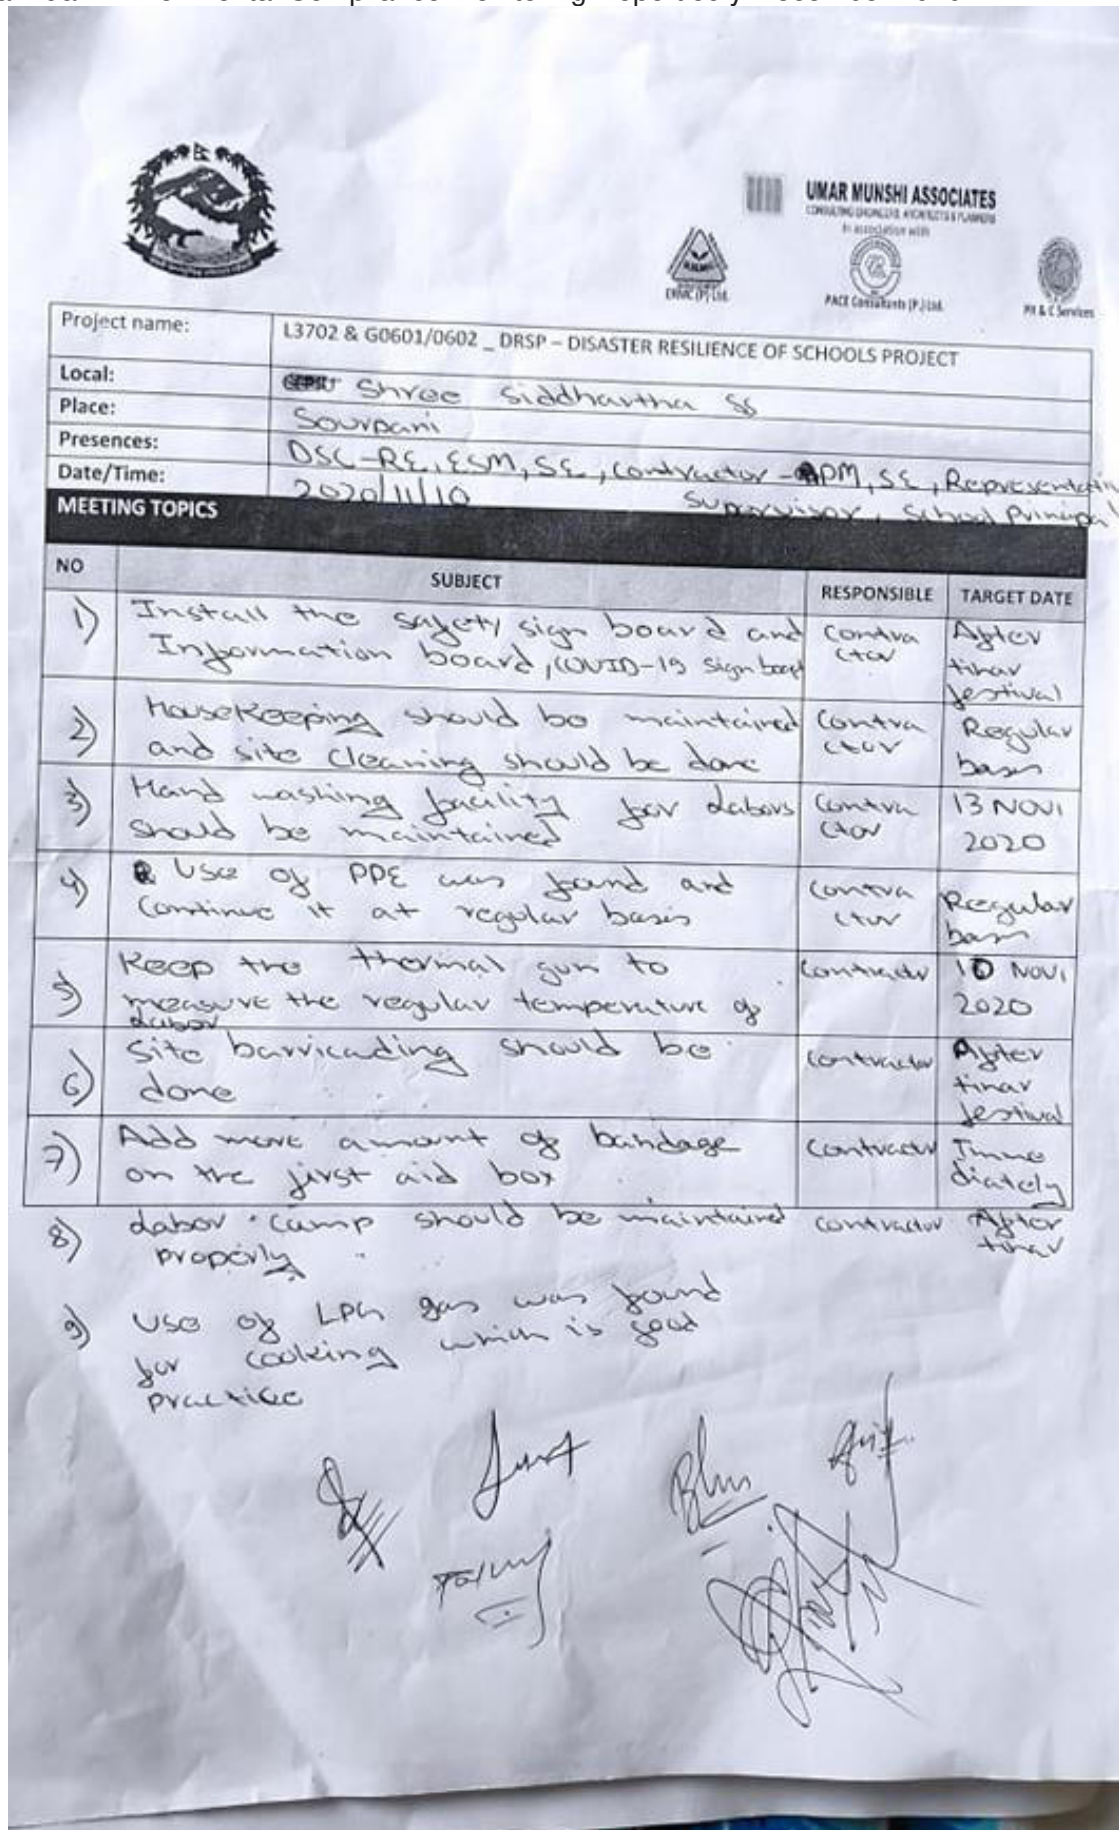 UMAR MUNSHI ASSOCIATES
CONSULTING ENGINEERS, ARCHITECTS & PLANNERS
In association with
ERMC (P) Ltd.
PACE Consultants (P.) Ltd.
PH & C Services
Project name: L3702 & G0601/0602 _ DRSP – DISASTER RESILIENCE OF SCHOOLS PROJECT
Local: Shree Siddhartha SS
Place: Sourpani
Presences: DSC-RE, ESM, SE, Contractor - PM, SE, Representative
Supervisor, School Principal
Date/Time: 2020/11/10
MEETING TOPICS
NO SUBJECT RESPONSIBLE TARGET DATE
1) Install the safety sign board and contra After
Information board, COVID-19 Sign board ctor tihar
festival
2) HouseKeeping should be maintained contra Regular
and site cleaning should be done ctor basis
3) Hand washing facility for Labors contra 13 NOV,
should be maintained ctor 2020
4) Use of PPE was found and contra Regular
continue it at regular basis ctor basis
5) Keep the thermal gun to contractor 10 NOV,
measure the regular temperature of 2020
Labor
6) Site barricading should be contractor After
done tihar
festival
7) Add more amount of bandage contractor Imme
on the first aid box diately
8) Labor camp should be maintained contractor After
properly tihar
9) Use of LPG gas was found
for cooking which is good
practice